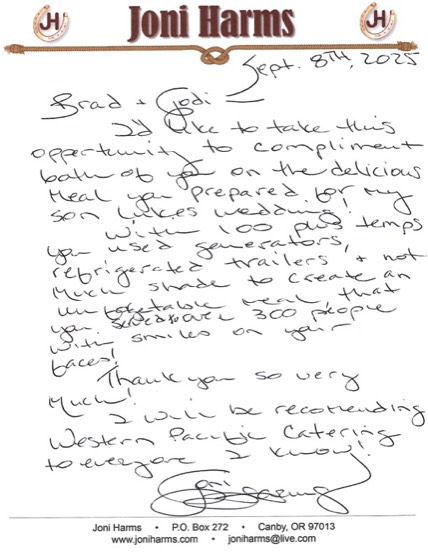 JH
Joni Harms
JH
Sept. 8TH, 2025
Brad + Jodi —
I'd like to take this
opportunity to compliment
both of you on the delicious
Meal you prepared for my
son Lukes wedding!
With 100 plus temps
you used generators,
refrigerated trailers, + not
Much shade to create an
unforgetable meal, that
you served to over 300 people
with smiles on your
faces!
Thank you so very
Much!
I will be recomending
Western Pacific Catering
to everyone I know!
Joni Harms
Joni Harms • P.O. Box 272 • Canby, OR 97013
www.joniharms.com • joniharms@live.com